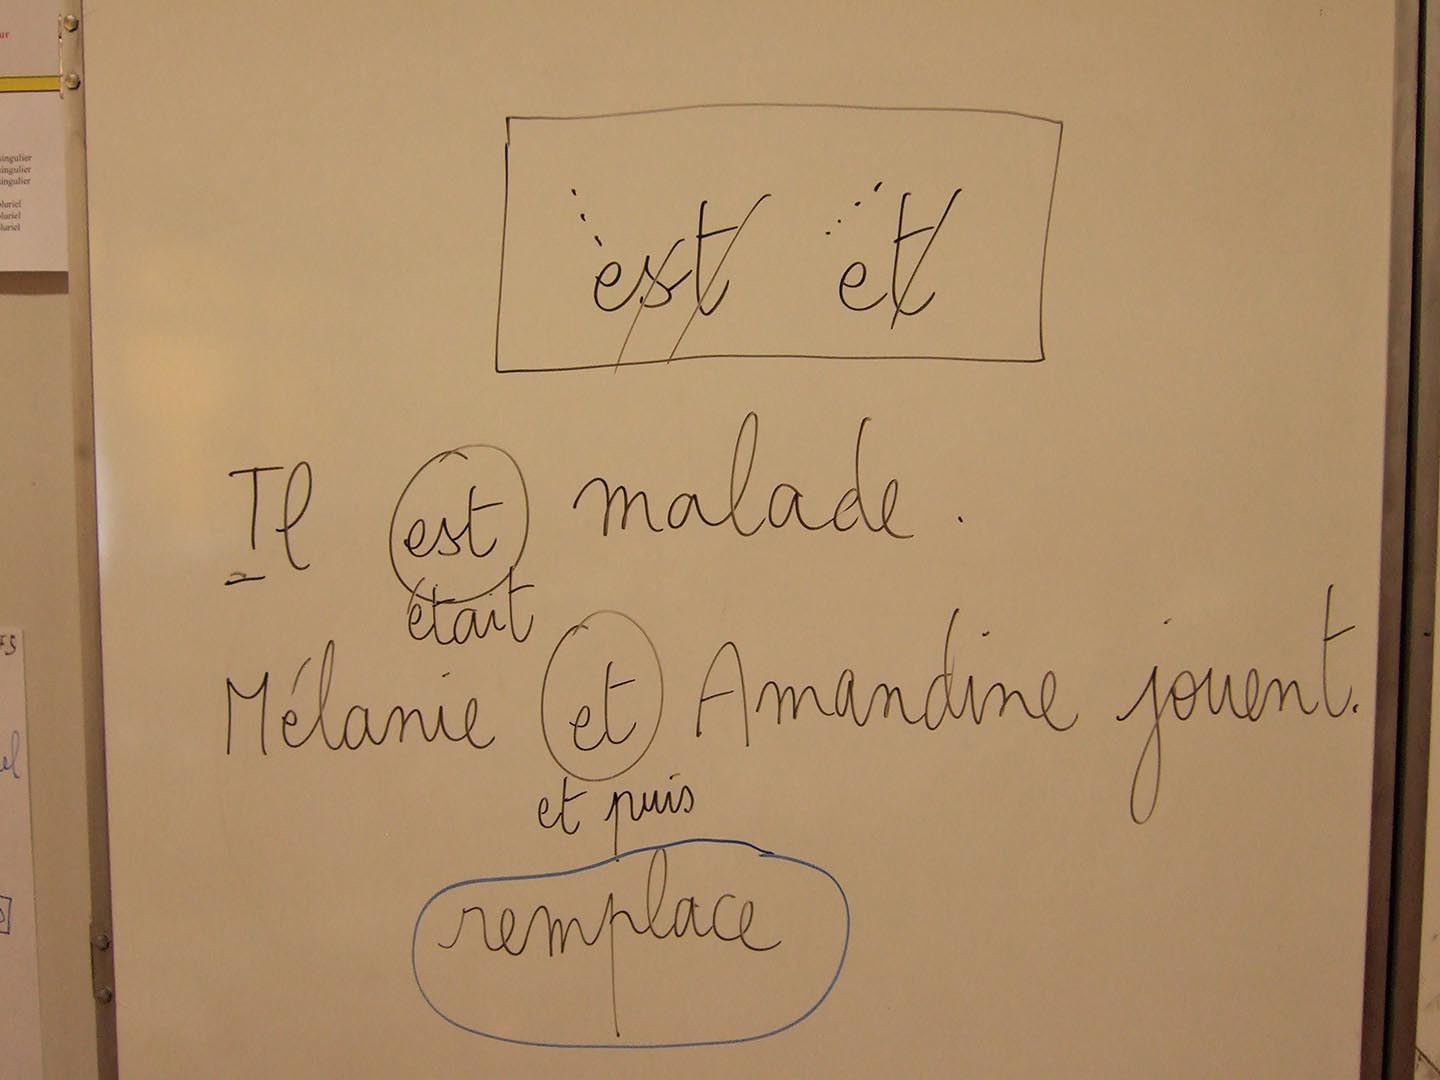 est et
Il est malade.
était
Mélanie et Amandine jouent.
et puis
remplace
singulier
singulier
singulier
pluriel
pluriel
pluriel